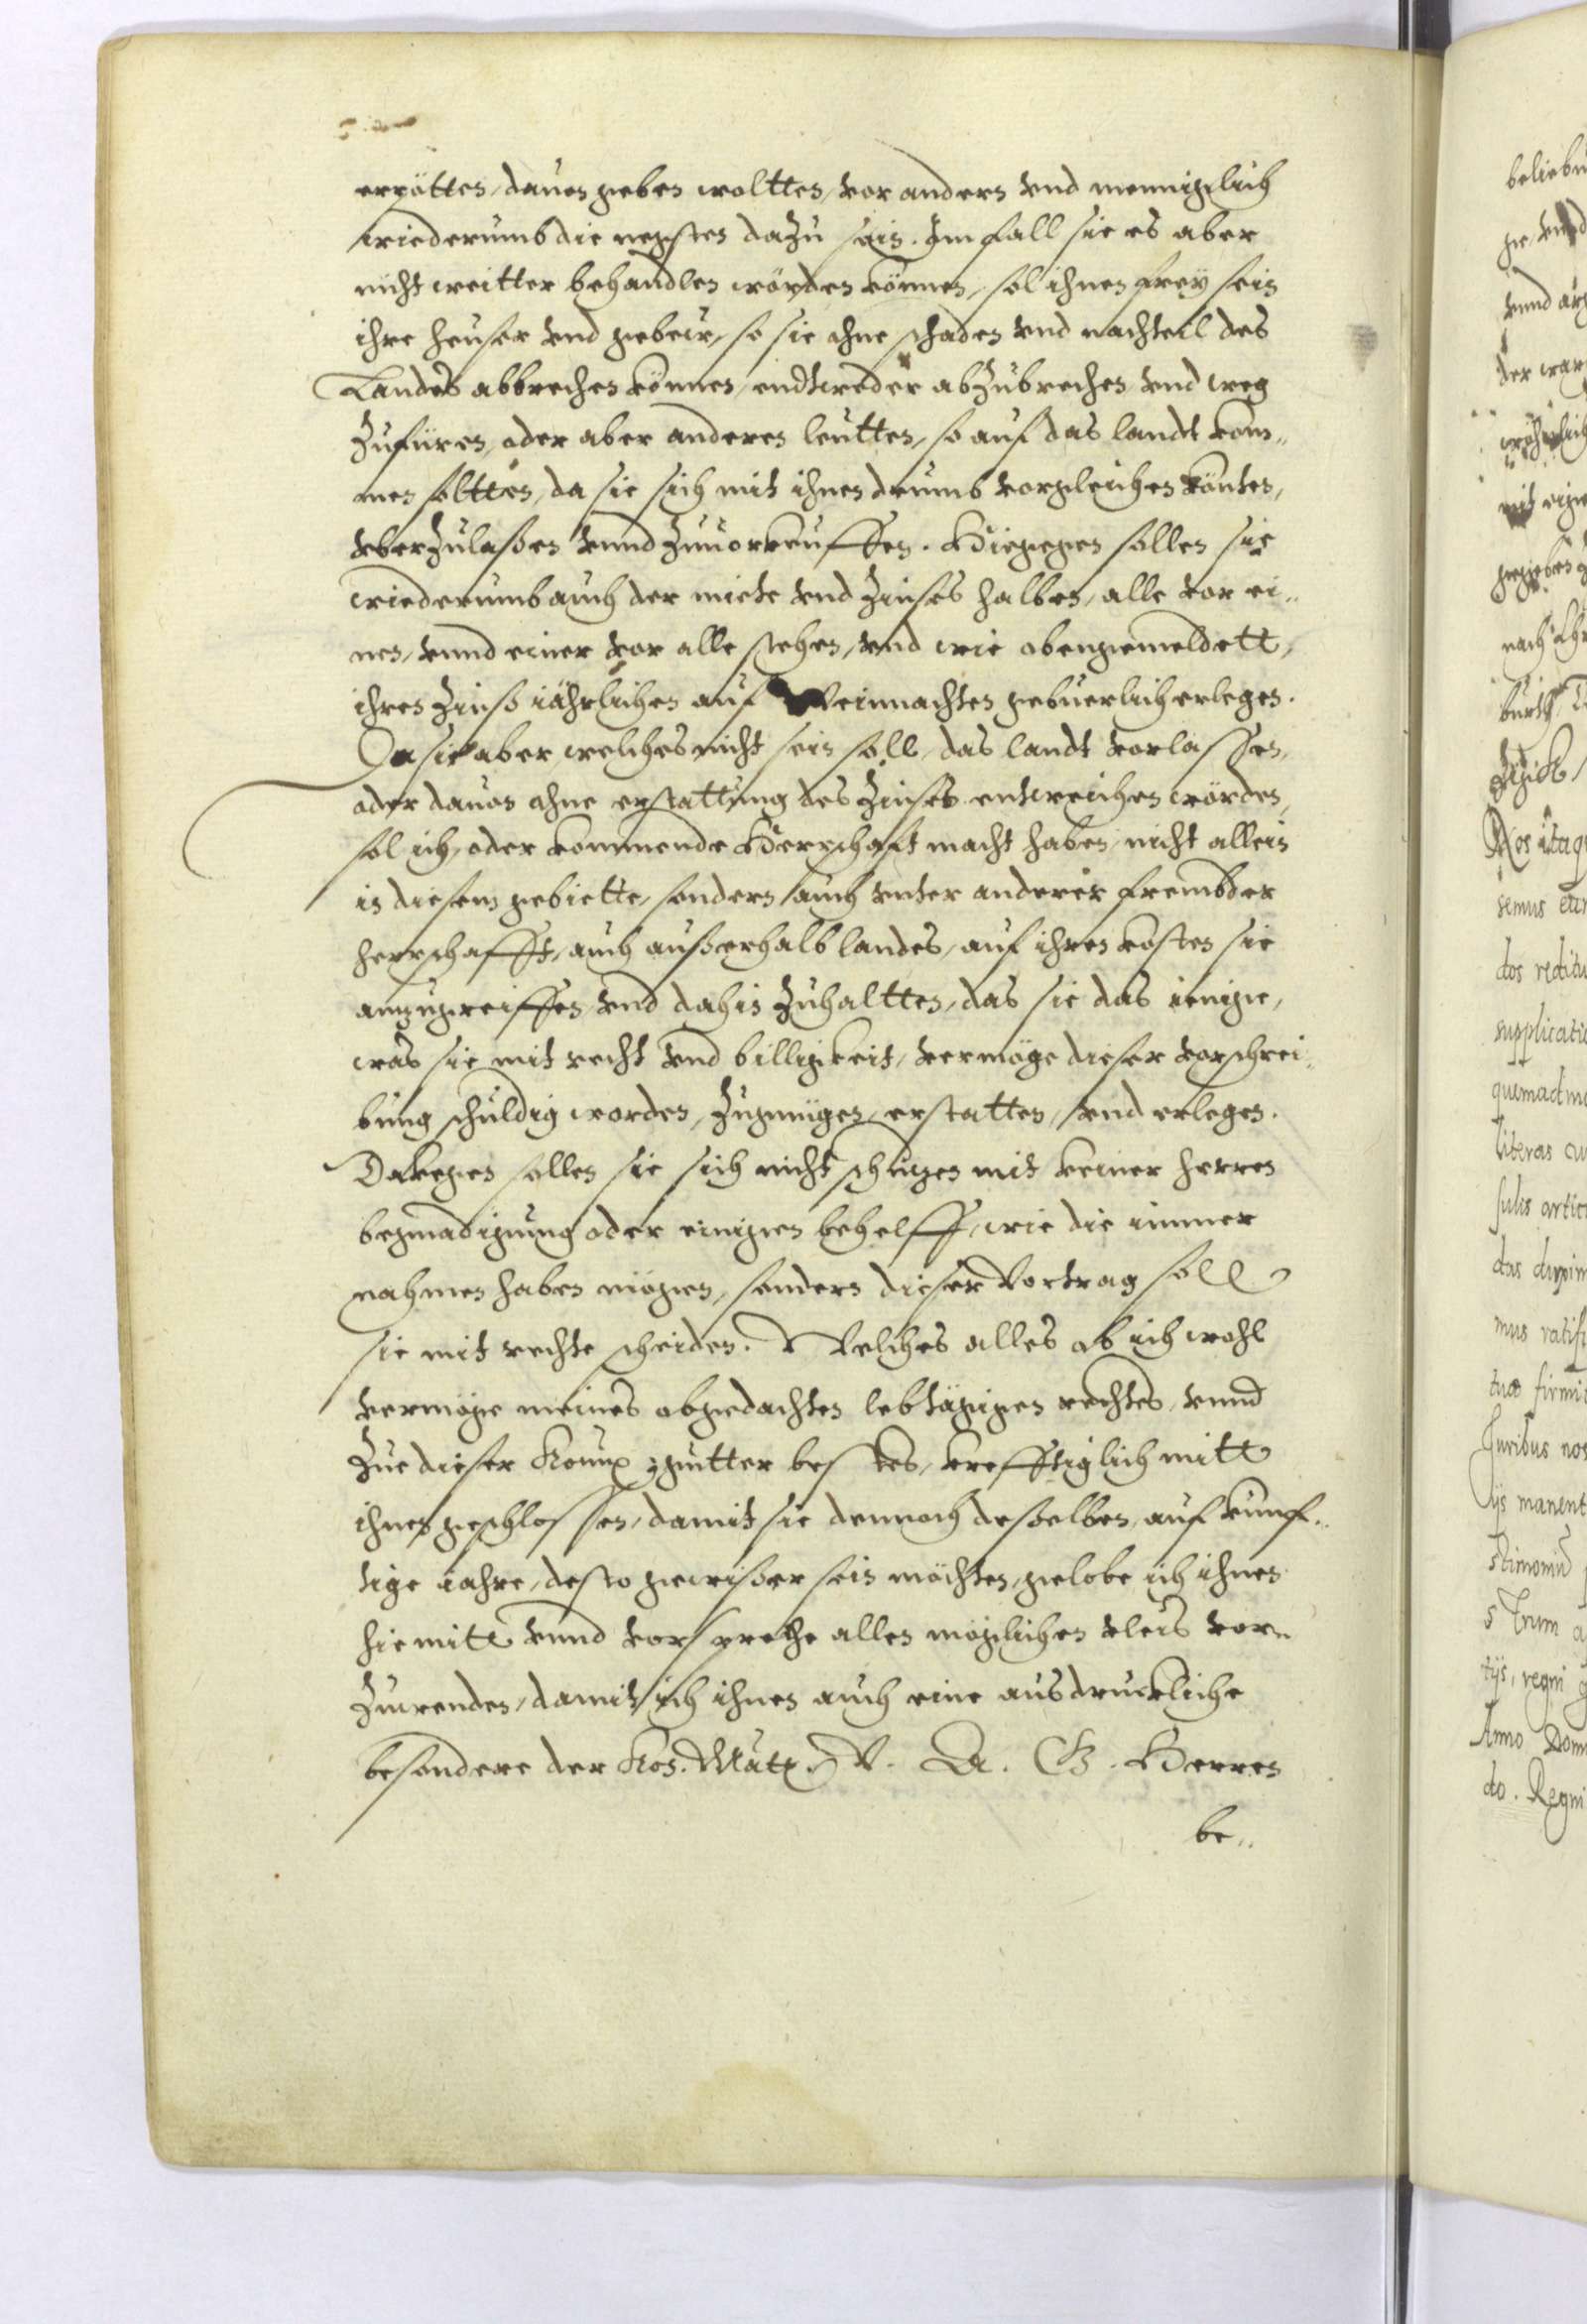 erpötten, davon geben woltten, vor andern vnd menniglich
wiederumb die negsten dazu sein. Im fall sie es aber
nicht weitter behandlen wörden können, sol ihnen freÿ sein
ihre heuser vnd gebew, so sie ohne schaden vnd nachteil des
Landes abbrechen können, endtweder abzubrechen vnd weg
zufüren, oder aber anderen leutten, so auf das landt kom„
men soltten, da sie sich mit ihnen drumb vorgleichen könten,
vberzulaßen vnnd zuuorkeuffen. Hiegegen sollen sie
wiederumb auch der miete vnd zinses halben, alle vor ei„
nen, vnnd einer vor alle stehen, vnd wie obengemeldett,
ihren zinß iährlichen auf Weinnachten gebuerlich erlegen.
Da sie aber welches nicht sein soll, das landt vorlassen,
oder davon ohne erstattung des zinses entweichen wörden,
sol ich, oder kommende Herrschaft macht haben, nicht allein
in diesem gebiette, sondern auch vnter anderer frembder
herrschafft, auch außerhalb landes, auf ihren kosten sie
anzugreiffen vnd dahin zuhaltten, das sie das ienige,
was sie mit recht vnd billigkeit, vermöge dieser vorschrei„
bung schuldig worden, zugnügen, erstatten, vnd erlegen.
Dakegen sollen sie sich nicht schützen mit keiner herren
begnadigung oder einigen behelff, wie die immer
nahmen haben mögen, sondern dieser Vortrag soll
sie mit rechte scheiden. Welches alles ob ich wohl
vermöge meines obgedachten lebtägigen rechtes, vnnd
zue dieser gütter besten, krefftiglich mitt
ihnen geschlossen, damit sie dennoch deßelben, auf künf„
tige iahre, desto gewißer sein möchten, gelobe ich ihnen
hiemitt vnnd vorspreche allen möglichen vleis vor„
zuwenden, damit ich ihnen auch eine ausdruckliche
besondere der Kön. Matt. V. A. G. Herren
be„
beliebu
ge, vnd
vnnd
der war
mit eige
nach
Nos itaq
semus
dos reditu
supplicatio
quemadmo
literas
sulis artic
mus ratifi
firmi
Juribus nos
ijs manent
stimoniu
tijs, regni
Anno Dom
do. Regni